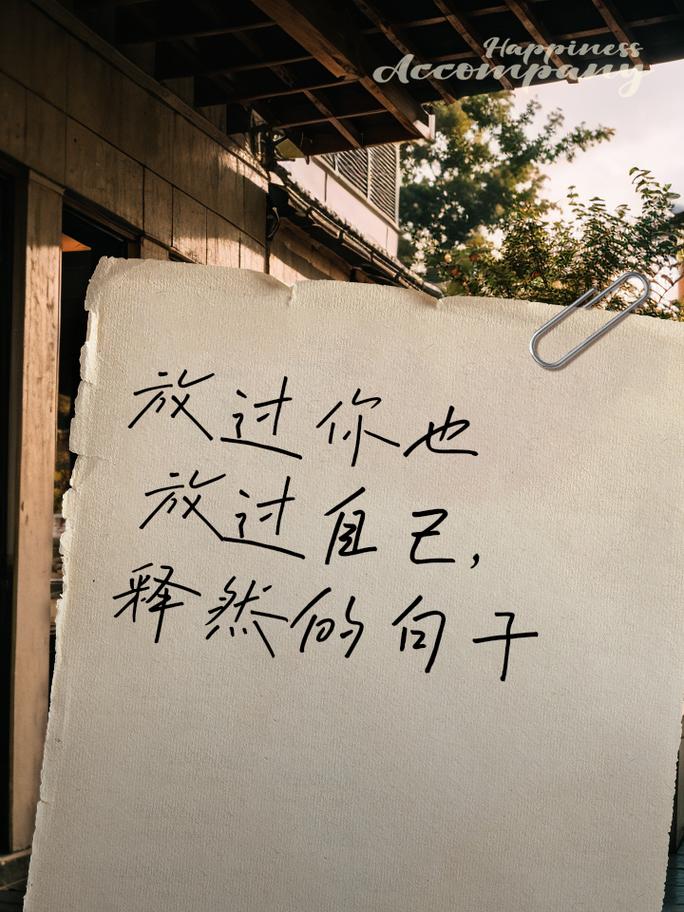 Happiness
Accompany
放过你也
放过自己,
释然的句子